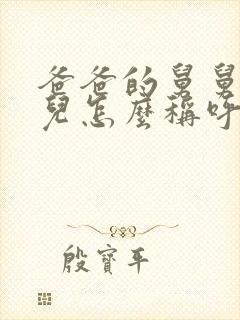 爸爸的舅舅
兒怎麼稱呼
殷寶平